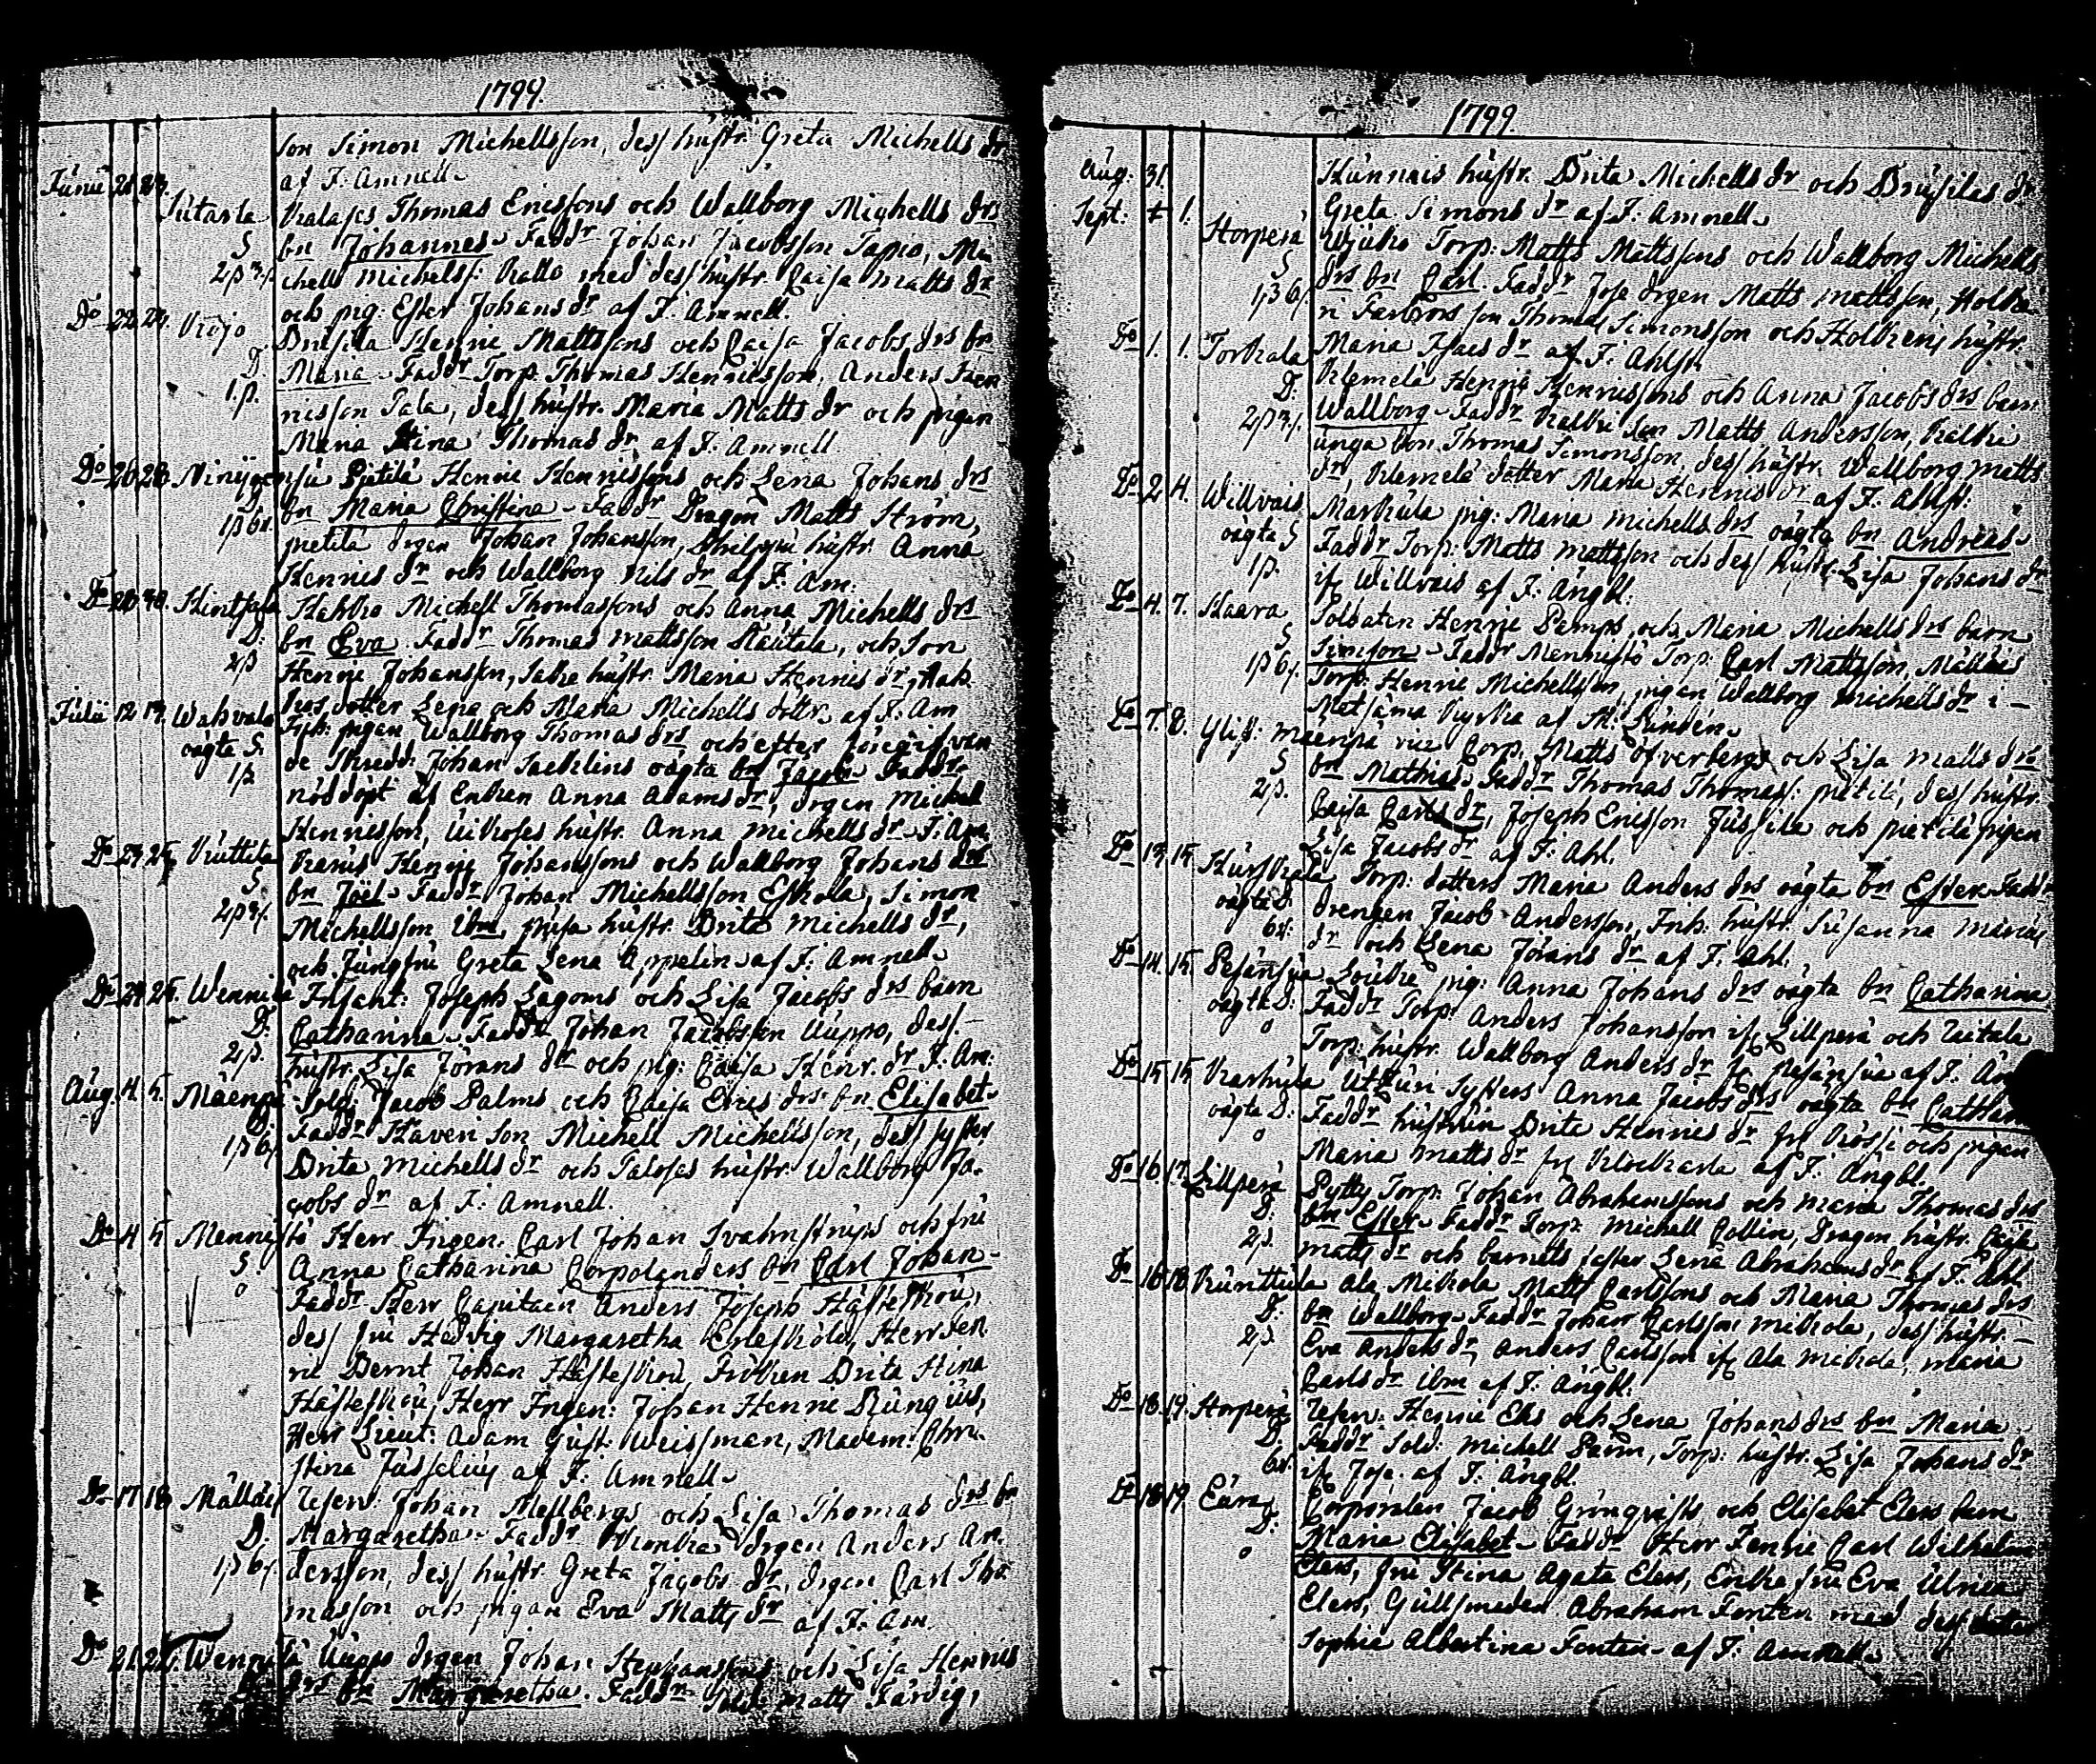 1799.
son Simon Michellsson, dess hustr. Greta Michells dr
af J: Amnell
Junii 21. 23. Sutarla Kalases Thomas Ericssons och Wallborg Mighells drs
S bn Johannes Faddr Johan Jacobsson Tapio, Mi
2 p chell Michelss: Kallo med dess hustr. Caisa Matts dr
och pig: Ester Johans dr af J. Amnell.
Do 22. 24. Viojo Brusila Henric Mattssons och Caisa Jacobs drs bn
D Maria Faddr Torp. Thomas Henricsson, Anders Hen
1. p. ricsson Tala, dess hustr. Maria Matts dr och pigan
Maria Stina Thomas dr af J. Amnell
Do 26 28 Ninijoensu Pietilä Henric Henricssons och Lena Johans drs
D bn Maria Christina Faddr Dragon Matts Ström,
1 p 6 pietilä drgen Johan Johansson, hustr. Anna
Henrics dr och Wallborg Nils dr af J. Am.
Do Hintsala Hakko Michell Thomassons och Anna Michells drs
D: bn Eva Faddr Thomas Mattsson Rautala, och Son
2 p Henric Johansson, hustr Maria Henrics dr, Hak
kos dotter Lena och Maria Michells döttr. af J: Am
Julii 12 13. Wahvala pigan Wallborg Thomas drs och efter föregifvan
oägta S: de Skrädd: Johan Sacklins oägta bn Jacob Faddr
1 p nöddöpt af Enkan Anna Adams dr, drgen Michel
Henricsson, hustr. Anna Michells dr. J: Am
Do 24. 25. Ruttila Henric Johanssons och Wallborg Johans drs
S. bn Joël Faddr Johan Michellsson Eskola, Simon
2 p Michellsson ibm, hustr. Brita Michells dr,
och Jungfru Greta Lena Appelin af J: Amnell
Do 24 25. Wennilä Inhakt: Joseph Lagoms och Lisa Jacobs drs barn
D. Catharina Faddr Johan Jacobsson Uuppo, dess
2 p. hustr. Lisa Jörans dr och pig: Caisa Henr. dr J. Am.
Aug. 4. 5. Mäenpä Sold: Jacob Palms och Caisa Erics drs bn Elisabet
D: Faddr Haveri Son Michell Michellsson, dess syster
1 p 6 Brita Michells dr och Taloses hustr. Wallborg Ja-
cobs dr af J: Amnell.
Do 4 5 Mennistö Herr Ingen. Carl Johan Svahnströms och fru
S. Anna Catharina Corpolanders bn Carl Johan
o Faddr Herr Capitain Anders Joseph Hästeskou,
dess fru Hedvig Margaretha Ehrnsköld, Herr Fen
ric Bernt Johan Hästeskou, Fröken Brita Stina
Hästeskou, Herr Ingen: Johan Henric Bungius,
Herr Lieut: Adam Gust: Weissman, Madem: Chri-
stina Jusselius af J: Amnell
Do 17. 18. Mälläis Reserv: Johan Mellbergs och Lisa Thomas drs bn
D. Margaretha Faddr drgen Anders An-
1 p 6 dersson, dess hustr. Greta Jacobs dr, drgen Carl Tho
masson och pigan Eva Matts dr af J: Am.
Do 21. 25. Wennilä Uuppo drgen Johan Stephanssons och Lisa Henrics
drs bn Margaretha. Faddr Matts Färdig,
1799.
Aug. 31. Kunnais hustr. Brita Michells dr och Brusilas dr
Greta Simons dr af J: Amnell
Sept: 1. Storperä Torp: Matts Mattssons och Wallborg Michells
S drs bn Carl Faddr Jose drgen Matts Mattsson, Holke
1 p 6 ri Farbrors son Thomas Simonsson och Holkeris hustr.
Maria Isacs dr af J: Ahlst.
Do 1. 1. Torkala Klemelä Henric Henricssons och Anna Jacobs drs barn
D. Wallborg Faddr Kalkri Son Matts Andersson, Kalkri
2 p unga bon. Thomas Simonsson, dess hustr. Wallborg Matts
dr, Klemelä dotter Maria Henrics dr af J. Ahlst.
Do 2 4. Willvais Markula pig: Maria Michells drs oägta bn Andreas
oägta S Faddr Torp: Matts Mattsson och dess hustr. Lisa Johans dr
1 p. ifr Willvais af J. Ängbl.
Do 4. 7. Haara Soldaten Henric Pamps och Maria Michells drs barn
S Simson Faddr Mennistö Torp: Carl Mattsson, Mälläis
1 p 6 Torp: Henric Michellsson, pigan Wallborg Michells dr i
Matsäma Kyrka af M: Lunden.
Do 7. 8. Ylist: mäenpä Corp. Matts Öfverbergs och Lisa Matts drs
S bn Mathias Faddr Thomas Thomass: pietili, dess hustr.
2 p. Caisa Carls dr, Joseph Ericsson Jussila och pietilä pigan
Lisa Jacobs dr af J. Ahl.
Do 13. 15. Hurskala Torp: dotters Maria Anders drs oägta bn Ester Faddr
oägta D. drengen Jacob Andersson, Inh: hustr. Susanna Marcus
6 dr och Lena Jörans dr af J. Ahl.
Do 14. 15. Pesänsua pig: Anna Johans drs oägta bn Catharina
oägta D: Faddr Torp: Anders Johansson ifr Lillperä och Raitala
o Torp: hustr. Wallborg Anders dr fr Pesänsua af J. Än
Do 15 15 Karhula Utturi Systers Anna Jacobs drs oägta bn Cathar
oägta D: Faddr hustrun Brita Henrics dr frå Krössi och pigan
o Maria Matts dr frå Klockarla af J. Ängbl.
Do 16. 17. Lillperä Pytty Torp: Johan Abrahamssons och Maria Thomas drs
D. bn Ester Faddr Torp: Michell Collin, Dragon hustr. Caisa
2 p. Matts dr och barnets syster Lena Abrahams dr af J. Ahl
Do 16 18 Kunttula Ala Mickola Matts Carlssons och Maria Thomas drs
D. bn Wallborg Faddr Johan Carlsson Mickola, dess hustr.
2 p. Eva Anders dr, Anders Carlsson ifr Ala Mickola, Maria
Carls dr ibm af J. Ängbl.
Do 18. 19. Storperä Reserv. Henric Eks och Lena Johans drs bn Maria
D. Faddr Sold: Michell Parm, Torp: hustr. Lisa Johans dr
6 ifr Jose. af J. Ängbl
Do 18 19. Eura Corporalen Jacob Grönqvists och Elisabet Elers barn
D: Maria Elisabet Faddr Herr Fenric Carl Wilhelm
o Elers, fru Stina Agata Elers, Enke fru Eva Ulrica
Elers, Gullsmeden Abraham Fonten med dess dotter
Sophia Albertina Fontin af J. Amnell